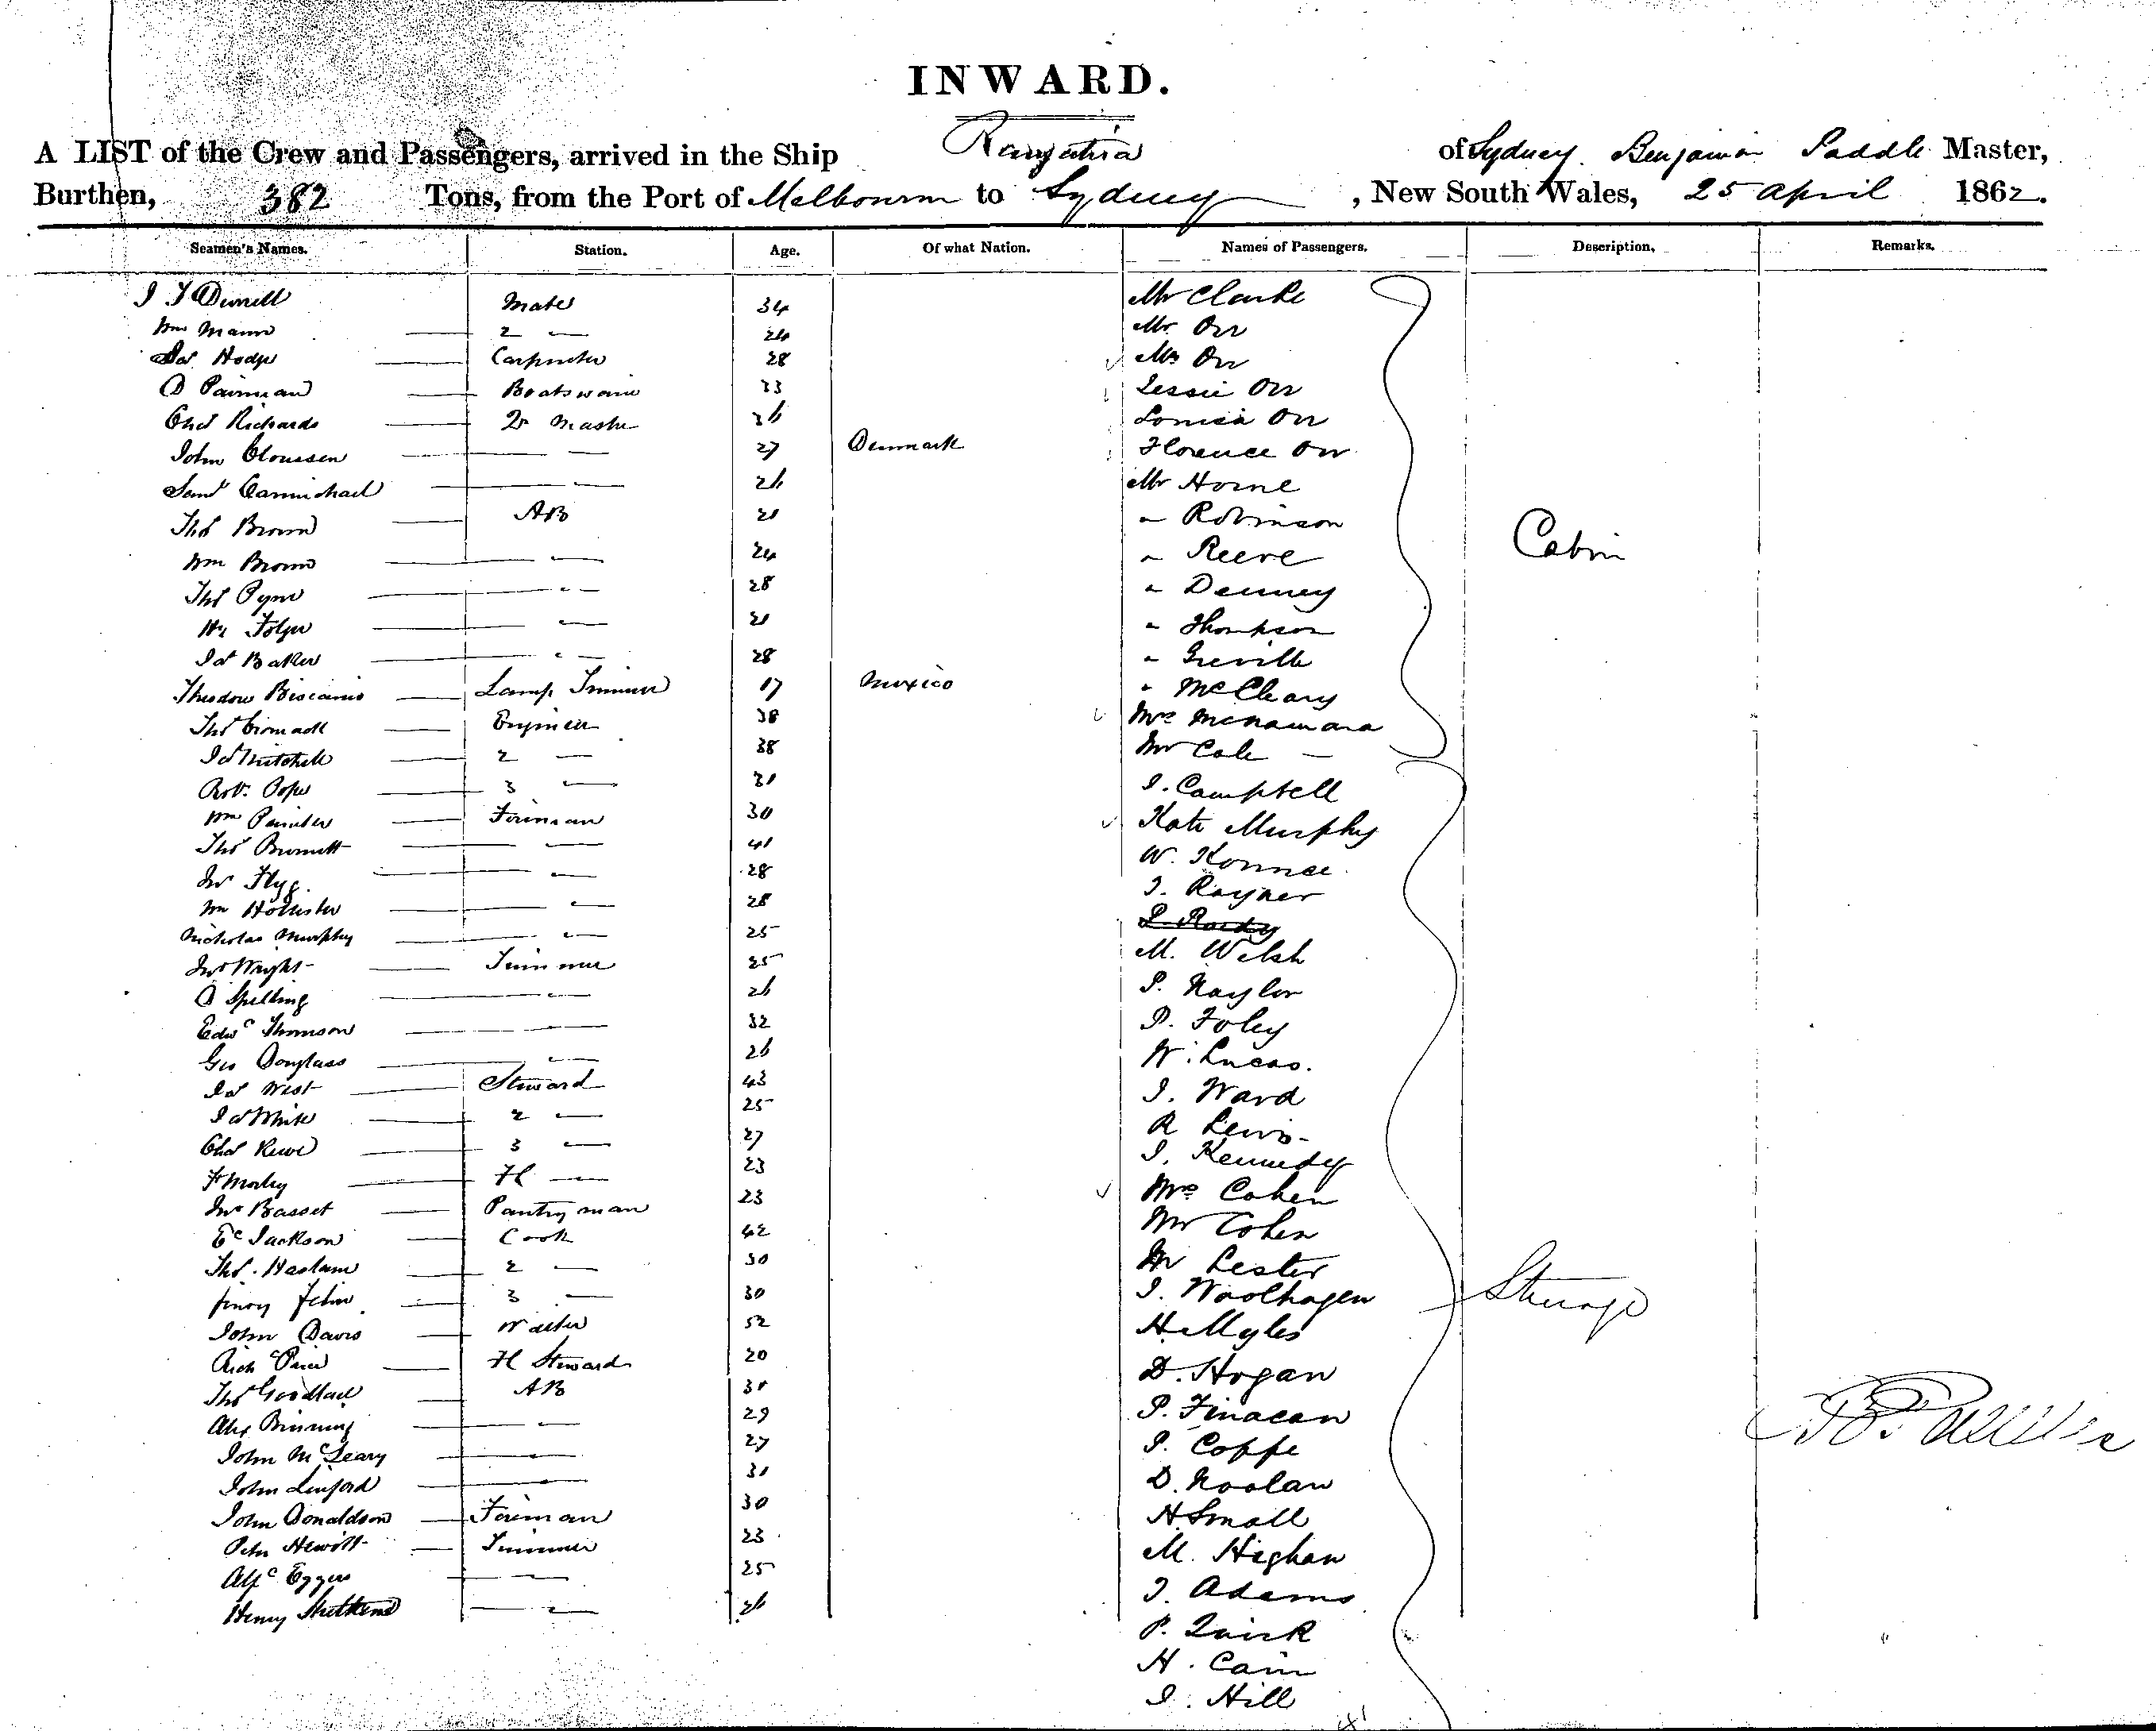 INWARD.
A LIST of the Crew and Passengers, arrived in the Ship Rangatira of Sydney Benjamin Paddle Master,
Burthen, 382 Tons, from the Port of Melbourne to Sydney, New South Wales, 25 April 1862.
Seamen's Names. Station. Age. Of what Nation. Names of Passengers. Description. Remarks.
Mate 34 Mr Clarke
Wm Mann 2 — 24 Mr Orr
Jas Hodge Carpenter 28 Mrs Orr
D Pairman Boatswain 33 Jessie Orr
Chas Richards Qr Master 26 Louisa Orr
John Cloussen — 27 Denmark Florence Orr
Saml Carmichael — 26 Mr Horne
Thos Brown AB 21 " Robinson
Wm Brown — 24 " Reeve
Thos Pym — 28 " Denney
Hy Folger — 21 " Thompson
Jas Baker — 28 " Greville
Theodore Biscamio Lamp Trimmer 17 Mexico " McCleary
Thos Engineer 38 Mrs McNamara
Jas Mitchell 2 — 38 Mr Cale
Cabin
Robt. Pope 3 — 31 J. Campbell
Wm Painter Fireman 30 Kate Murphy
Thos Burnett — 41 W. Konnce
Jno Flyg. — 28 J. Rayner
Wm Hollister — 28 P Roidy
Nicholas Murphy — 25 M. Welsh
Jno Wright Trimmer 25 P. Naylor
D Spelling — 26 P. Foley
Edwd Thomson — 32 W. Lucas.
Geo Douglass — 26 J. Ward
Jas West Steward 43 R Lewis
Jas White 2 — 25 J. Kennedy
Chas Rewe 3 — 27 Mrs Cohen
F Morley Fl — 23 Mr Cohen
Jno Basset Pantryman 23 Mr Lester
Ed Jackson Cook 42 J. Woolhagen
Thos. Haslam 2 — 30 H. Myles
3 — 30 D. Hogan
John Davis Waiter 52 P. Finacan
Rich Price Fl Steward 20 J. Coppe
Thos Goodlad AB 31 D. Noolan
Alex Binning — 29 H Small
John McLeary — 27 M. Highan
John Linford — 31 J. Adams
John Donaldson Fireman 30 P. Quirk
Peter Hewitt Trimmer 23 H. Cain
Alfd Eggers — 25 J. Hill
Henry — 26
Steerage